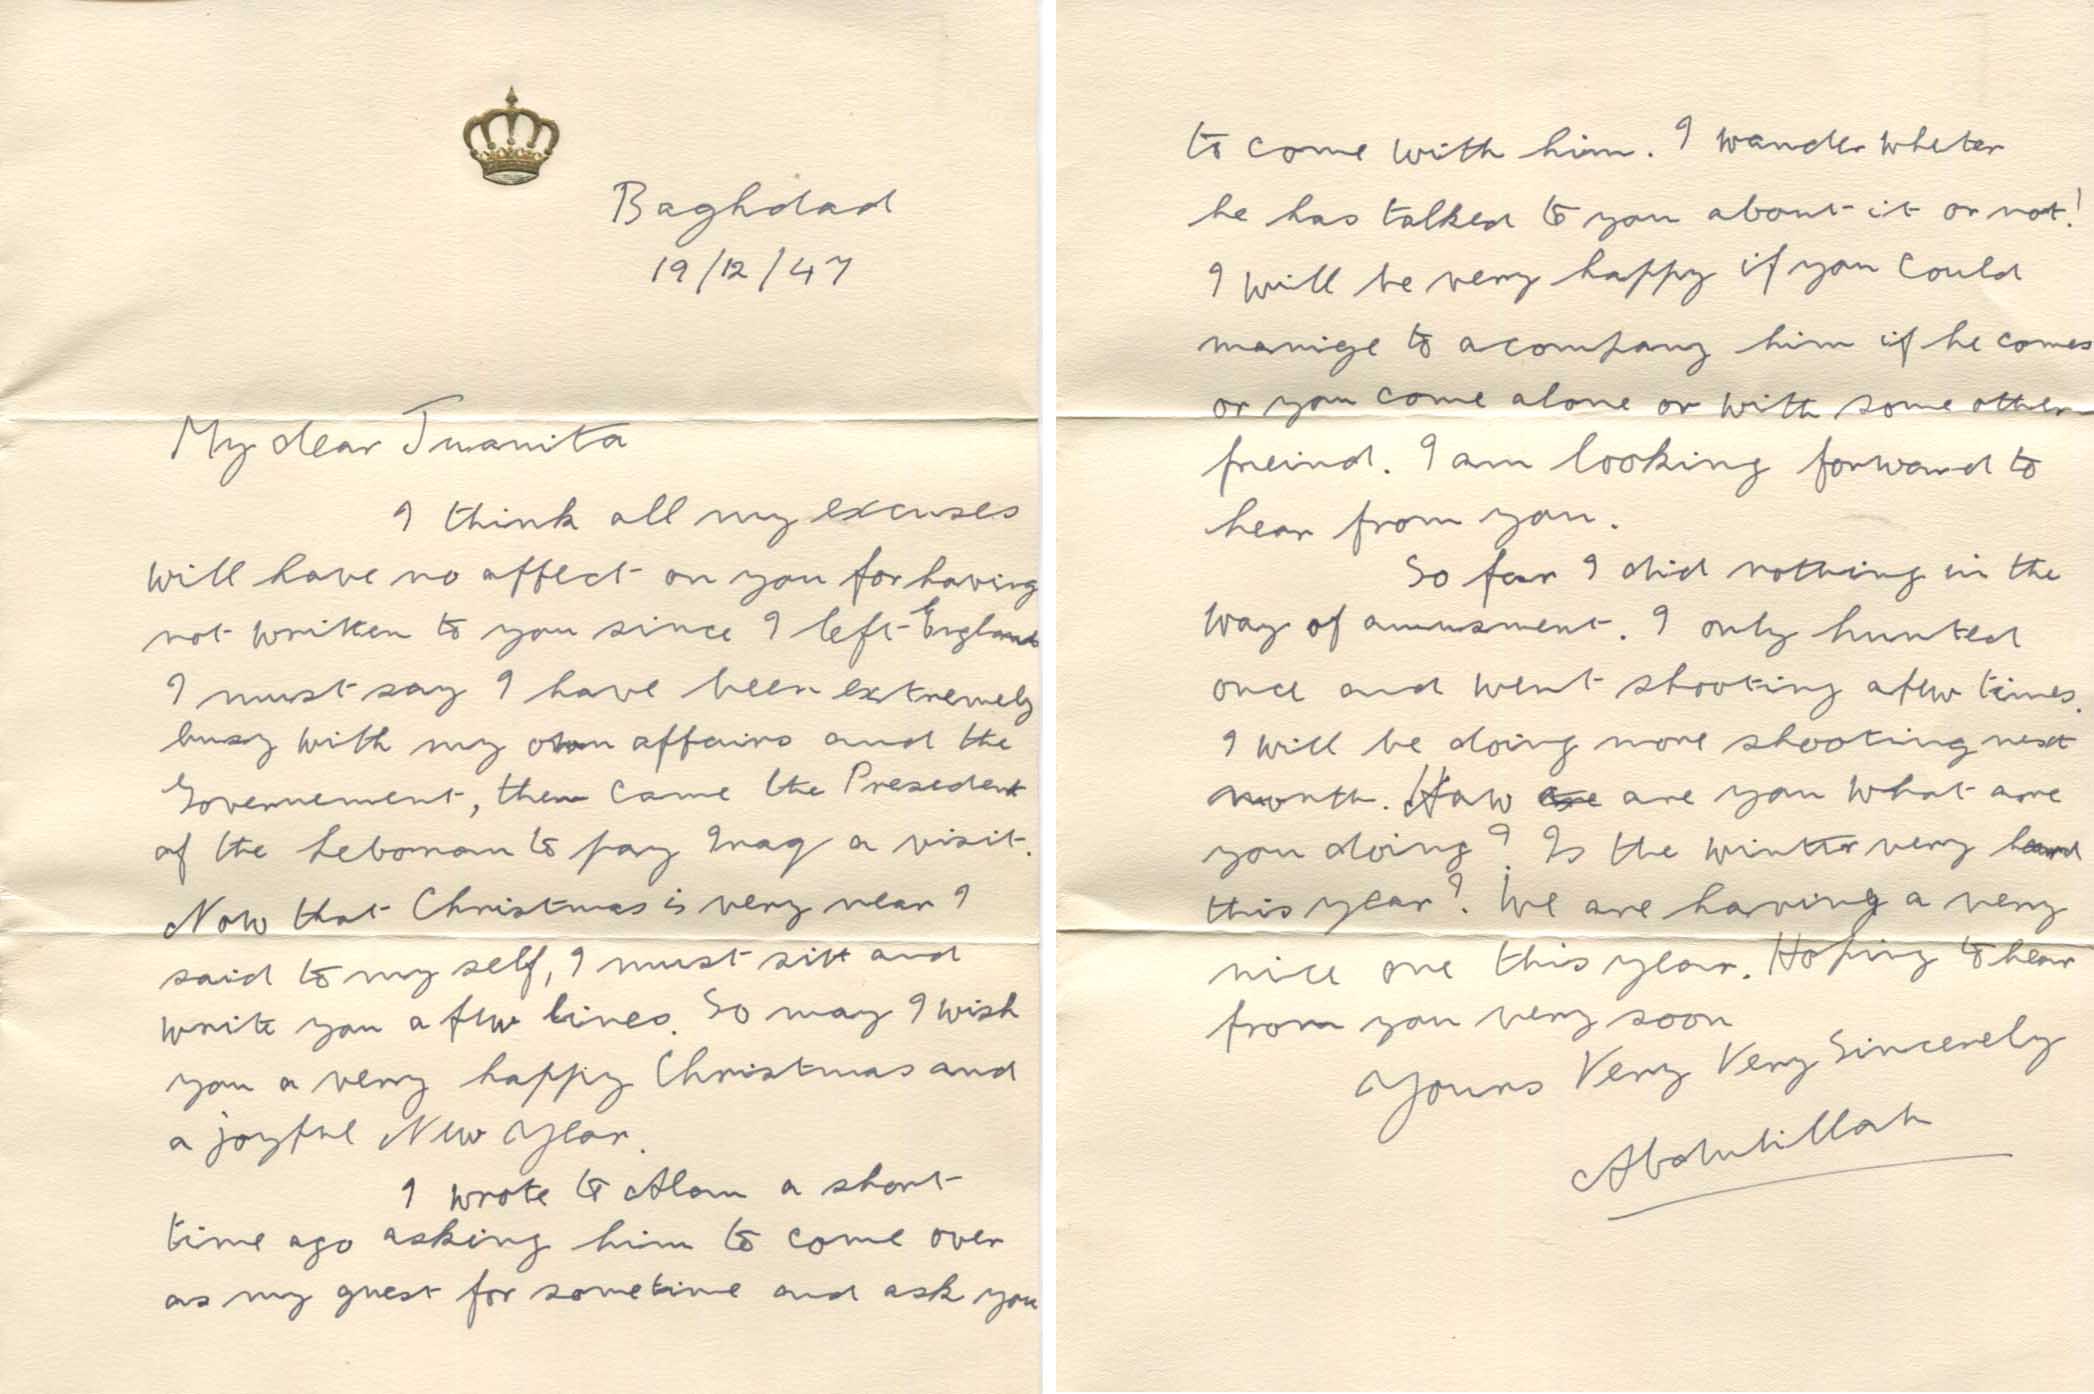 Baghdad
19/12/47
My dear Juanita
I think all my excuses
will have no affect on you for having
not written to you since I left England
I must say I have been extremely
busy with my own affairs and the
Governement, then came the Presedent
of the Lebonan to pay Iraq a visit.
Now that Christmas is very near I
said to my self, I must sitt and
write you a few lines. So may I wish
you a very happy Christmas and
a joyful New Year.
I wrote to Alam a short
time ago asking him to come over
as my guest for sometime and ask you
to come with him. I wander wheter
he has talked to you about it or not!
I will be very happy if you could
manige to acompany him if he comes
or you come alone or with some other
freind. I am looking forward to
hear from you.
So far I did nothing in the
way of amusment. I only hunted
once and went shooting a few times.
I will be doing more shooting next
month. How are are you what are
you doing? Is the winter very hard
this year? We are having a very
nice one this year. Hoping to hear
from you very soon
Yours Very Very Sincerely
Abdulillah